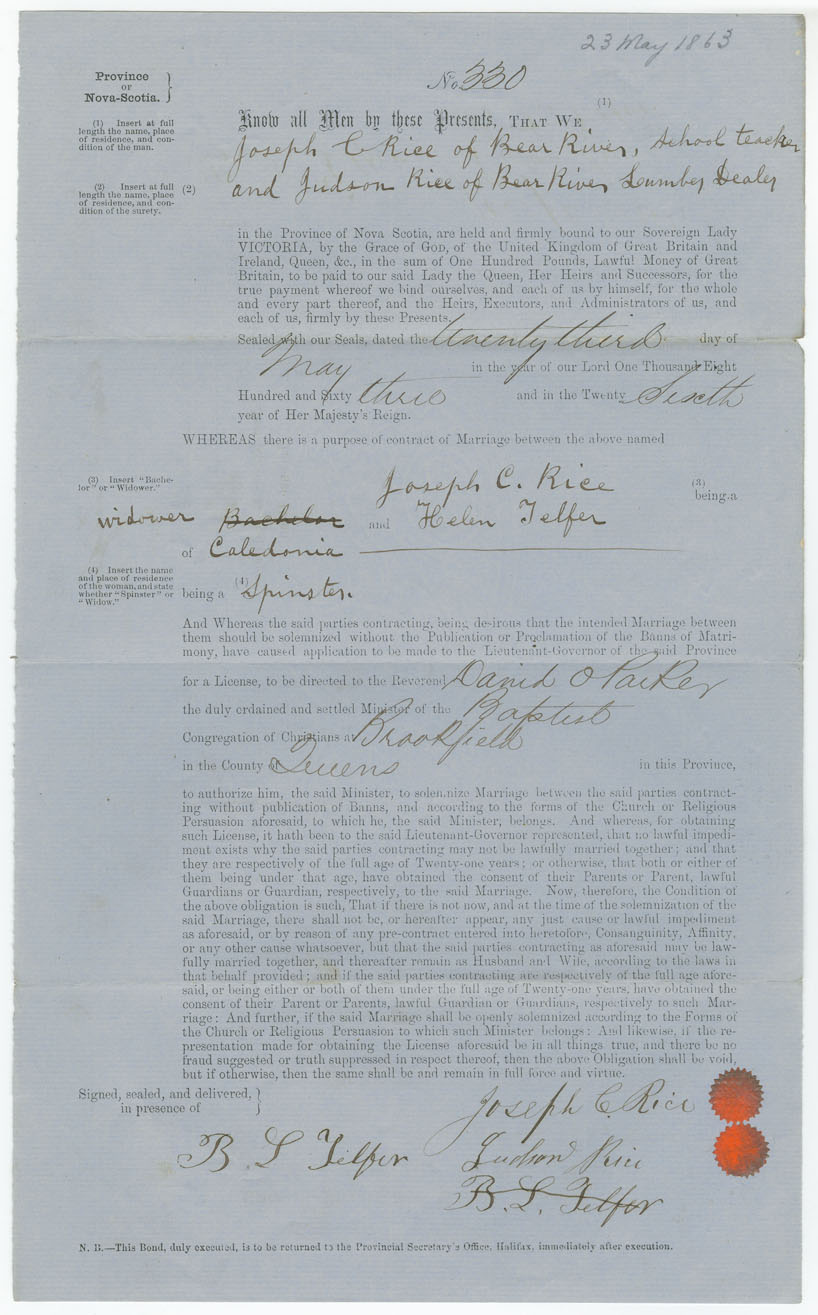 23 May 1863
Province
OF
Nova-Scotia.
No. 330
(1)
Know all Men by these Presents, THAT WE
(1) Insert at full
length the name, place
of residence, and con-
dition of the man.
Joseph C Rice of Bear River, School teacher
(2) Insert at full
length the name, place
of residence, and con-
dition of the surety.
(2)
and Judson Rice of Bear River Lumber Dealer
in the Province of Nova Scotia, are held and firmly bound to our Sovereign Lady
VICTORIA, by the Grace of GOD, of the United Kingdom of Great Britain and
Ireland, Queen, &c., in the sum of One Hundred Pounds, Lawful Money of Great
Britain, to be paid to our said Lady the Queen, Her Heirs and Successors, for the
true payment whereof we bind ourselves, and each of us by himself, for the whole
and every part thereof, and the Heirs, Executors, and Administrators of us, and
each of us, firmly by these Presents.
Sealed with our Seals, dated the twenty third day of
May in the year of our Lord One Thousand Eight
Hundred and Sixty three and in the Twenty Sixth
year of Her Majesty's Reign.
WHEREAS there is a purpose of contract of Marriage between the above named
(3) Insert "Bache-
lor" or "Widower."
Joseph C. Rice (3)
being a
widower Bachelor and Helen Telfer
of Caledonia
(4) Insert the name
and place of residence
of the woman, and state
whether "Spinster" or
"Widow."
being a (4) Spinster.
And Whereas the said parties contracting, being desirous that the intended Marriage between
them should be solemnized without the Publication or Proclamation of the Banns of Matri-
mony, have caused application to be made to the Lieutenant-Governor of the said Province
for a License, to be directed to the Reverend David O Parker
the duly ordained and settled Minister of the Baptist
Congregation of Christians at Brookfield
in the County of Queens in this Province,
to authorize him, the said Minister, to solemnize Marriage between the said parties contract-
ing without publication of Banns, and according to the forms of the Church or Religious
Persuasion aforesaid, to which he, the said Minister, belongs. And whereas, for obtaining
such License, it hath been to the said Lieutenant-Governor represented, that no lawful impedi-
ment exists why the said parties contracting may not be lawfully married together; and that
they are respectively of the full age of Twenty-one years; or otherwise, that both or either of
them being under that age, have obtained the consent of their Parents or Parent, lawful
Guardians or Guardian, respectively, to the said Marriage. Now, therefore, the Condition of
the above obligation is such, That if there is not now, and at the time of the solemnization of the
said Marriage, there shall not be, or hereafter appear, any just cause or lawful impediment
as aforesaid, or by reason of any pre-contract entered into heretofore, Consanguinity, Affinity,
or any other cause whatsoever, but that the said parties contracting as aforesaid may be law-
fully married together, and thereafter remain as Husband and Wife, according to the laws in
that behalf provided; and if the said parties contracting are respectively of the full age afore-
said, or being either or both of them under the full age of Twenty-one years, have obtained the
consent of their Parent or Parents, lawful Guardian or Guardians, respectively to such Mar-
riage: And further, if the said Marriage shall be openly solemnized according to the Forms of
the Church or Religious Persuasion to which such Minister belongs: And likewise, if the re-
presentation made for obtaining the License aforesaid be in all things true, and there be no
fraud suggested or truth suppressed in respect thereof, then the above Obligation shall be void,
but if otherwise, then the same shall be and remain in full force and virtue.
Signed, sealed, and delivered,
in presence of
Joseph C. Rice
B L Telfer Judson Rice
B. L. Telfer
N. B.—This Bond, duly executed, is to be returned to the Provincial Secretary's Office, Halifax, immediately after execution.